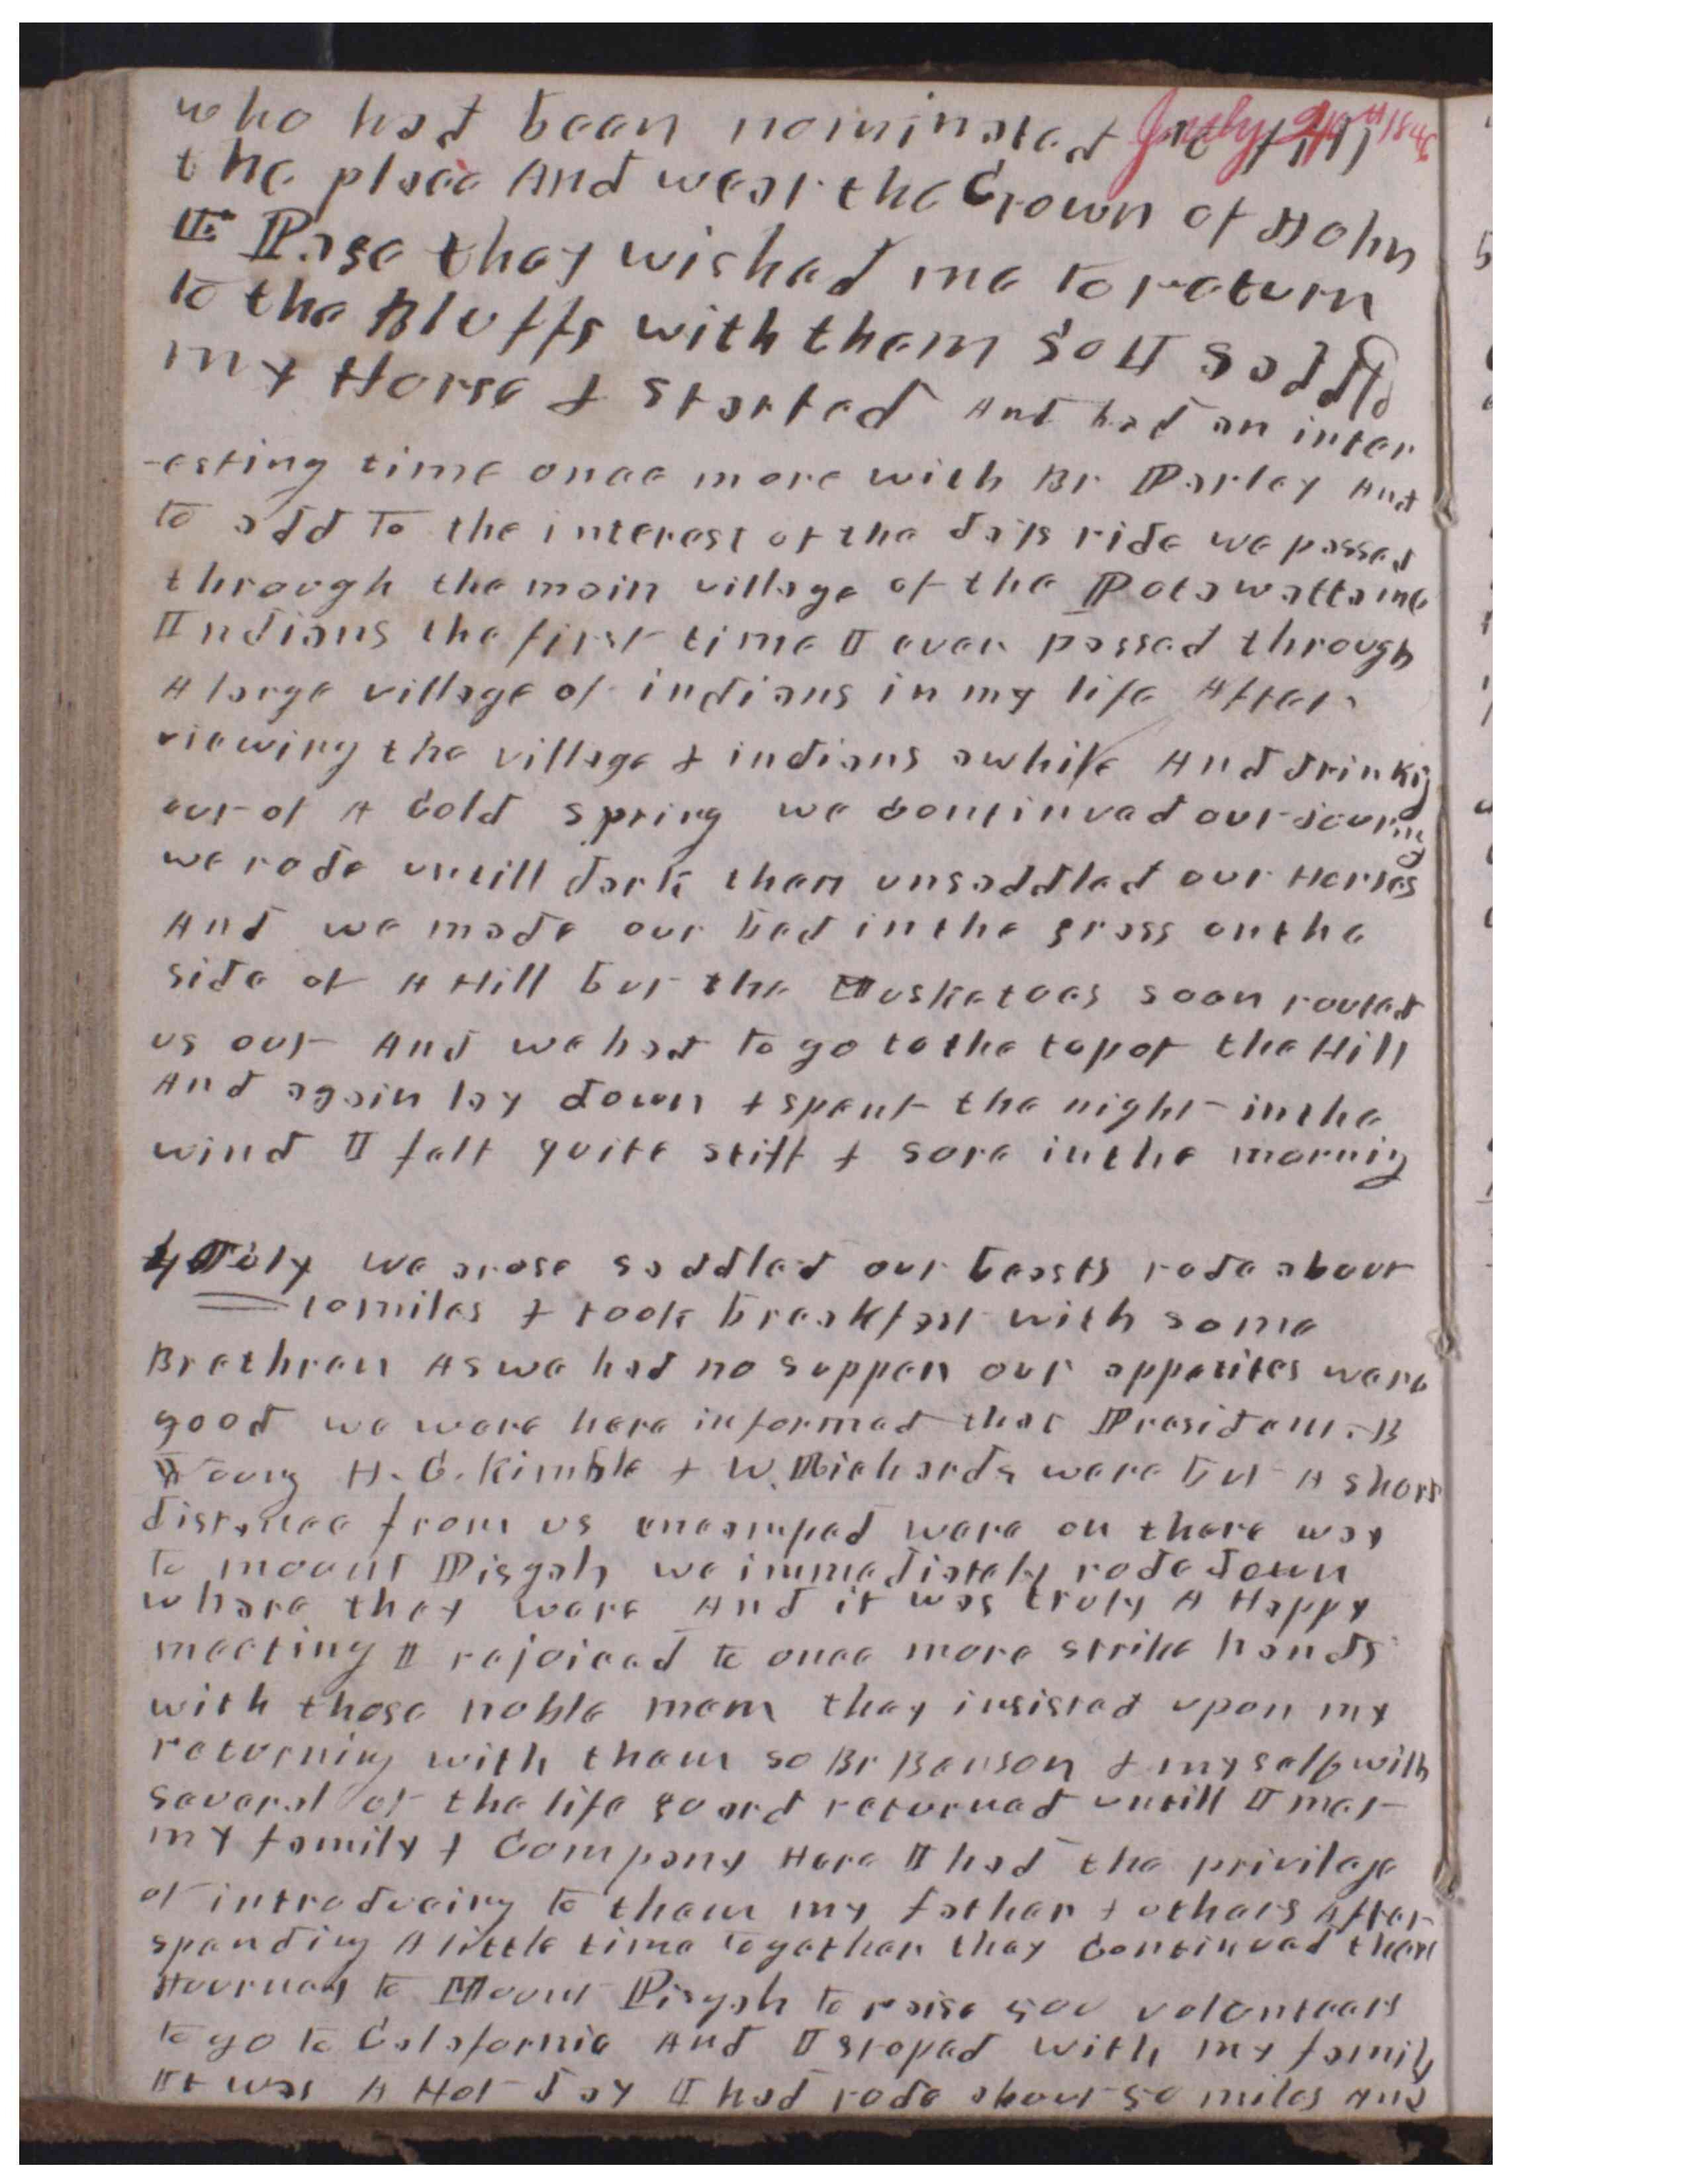 July 4th 1846
who had been nominated to fill
the place And wear the Crown of John
E. Page they wished me to return
to the Bluffs with them So I Saddled
my Horse & Started And had an inter
-esting time once more with Br Parley And
to add to the interest of the da[y]s ride we passed
through the main village of the Potawattamie
Indians the first time I ever passed through
A large village of indians in my life After
viewing the village & indians awhile And drinkig
out of A Cold spring we Continued our journy
we rode untill dark then unsaddled our Horses
And we made our bed in the grass on the
side of A Hill but the Musketoes soon routed
us out And we had to go to the top of the Hill
And again lay down & spent the night in the
wind I felt quite stiff & sore in the mornig
4 July we arose saddled our beasts rode about
10 miles & took breakfast with some
Brethren As we had no supper our appetites were
good we were here informed that President B
Young H. C. Kimble & W. Richards were but A short
distance from us encamped were on there way
to mount Pisgah we immediately rode down
whare they were And it was truly A Happy
meeting I rejoiced to once more strike hands
with those noble men they insisted upon my
returning with them so Br Benson & myself with
several of the life guard returned untill I met
my family & Company Here I had the privilege
of introducing to them my father & others After
spending A little time together they Continued their
Journey to Mount Pisgah to raise 500 volunteers
to go to Calafornia And I stoped with my family
It was A Hot day I had rode about 50 miles And